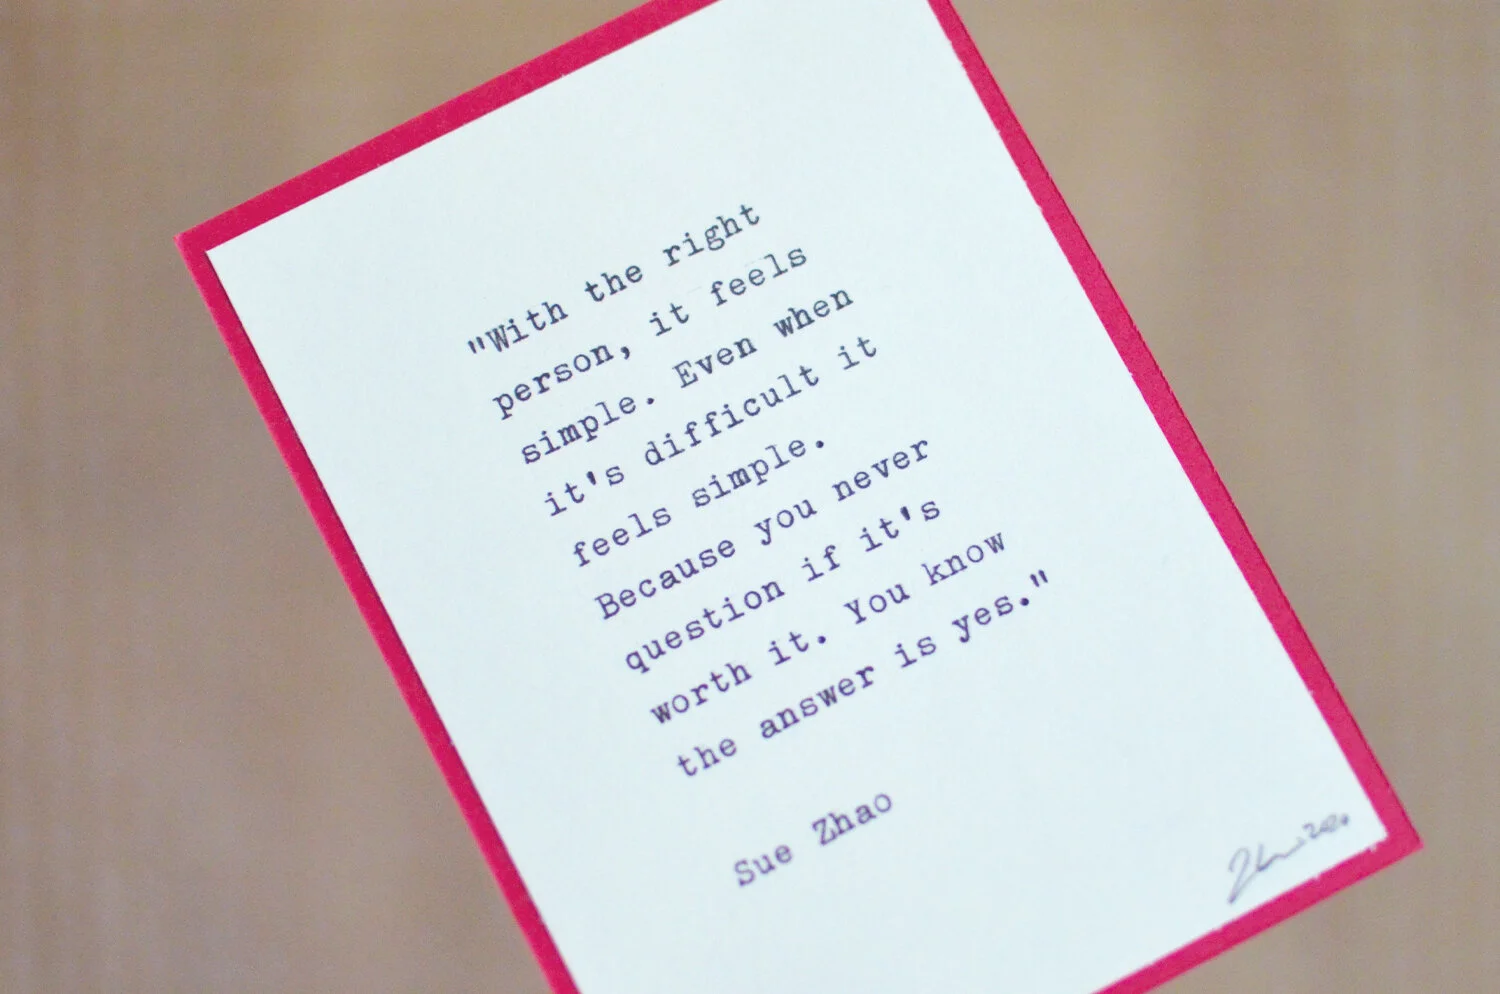 "With the right
person, it feels
simple. Even when
it's difficult it
feels simple.
Because you never
question if it's
worth it. You know
the answer is yes."
Sue Zhao